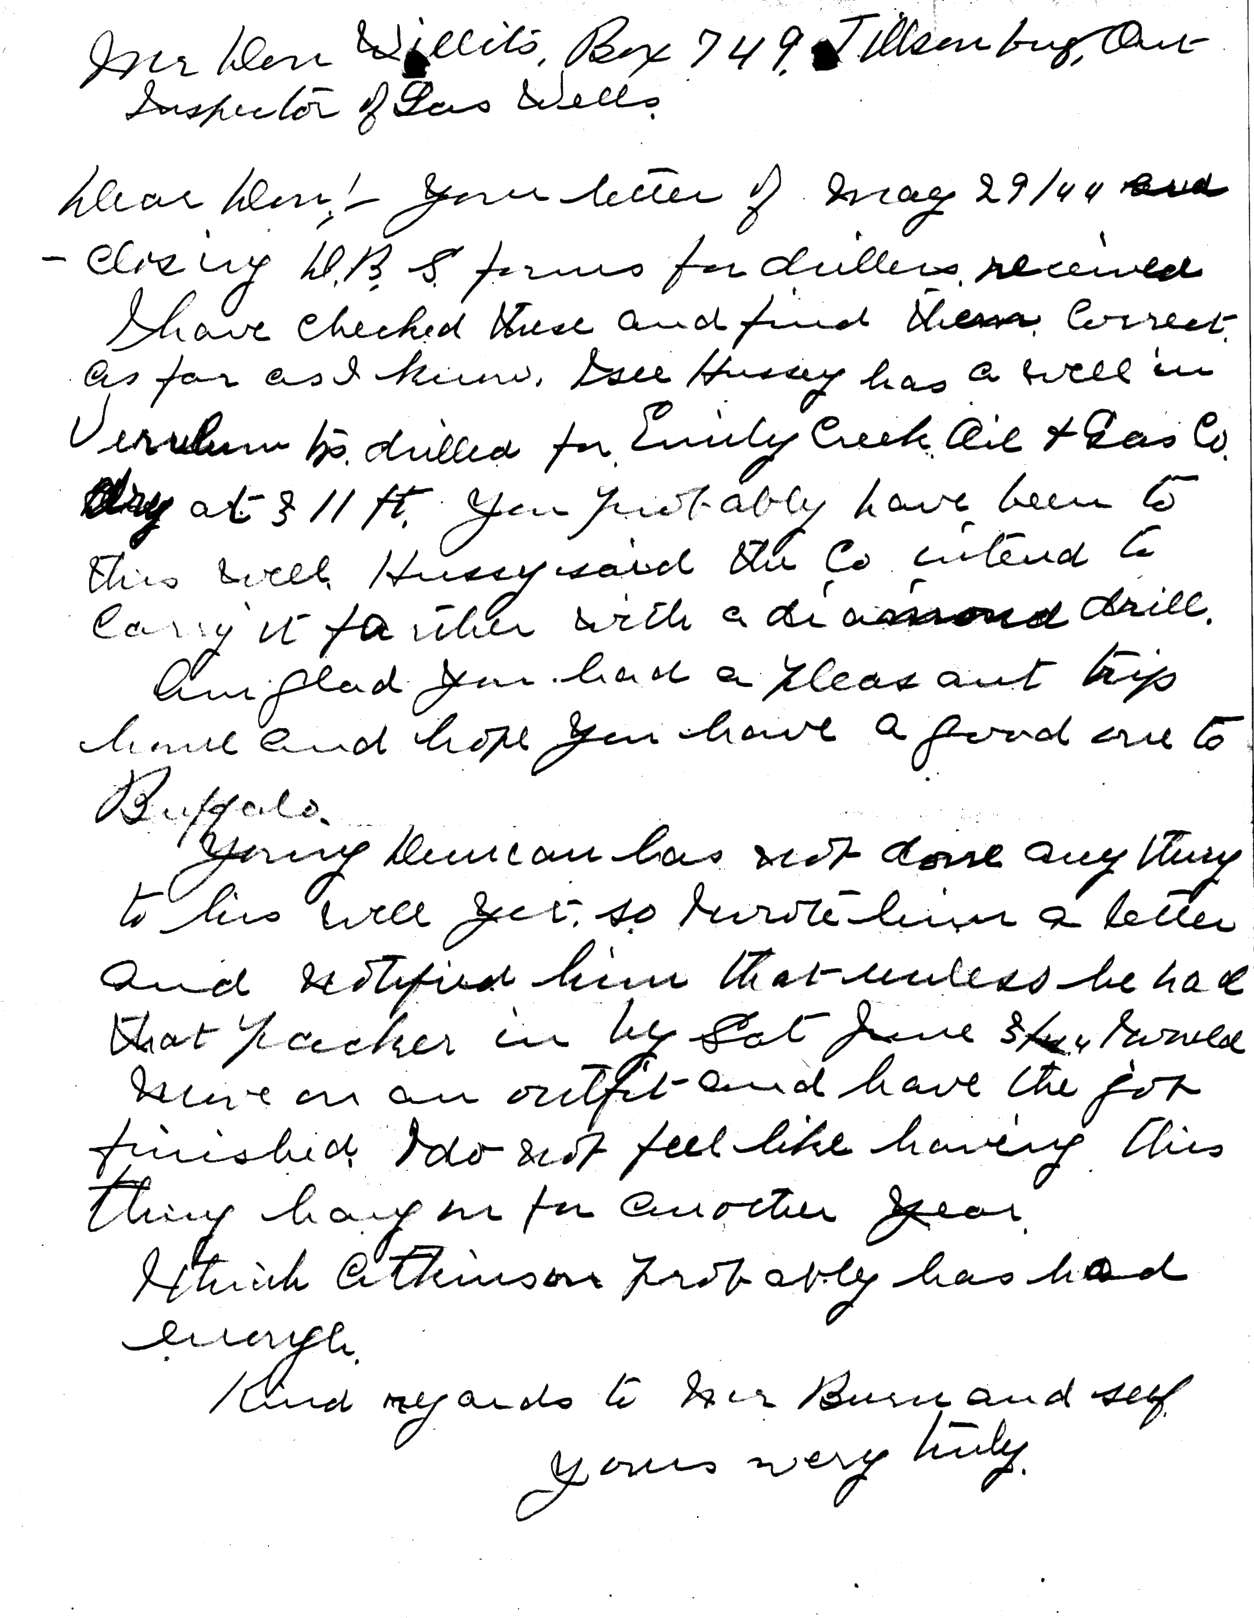 Mr Don Willits, Box 749, Tillsonburg, Ont
Inspector of Gas Wells.
Dear Don;- Your letter of May 29/44 and
- closing D.B.S. forms for drillers received
I have checked these and find them correct.
as far as I know. I see Hussey has a well in
Verulam tp. drilled for Emily Creek Oil & Gas Co.
dry at 311 ft. You probably have been to
this well. Hussey said the Co intend to
carry it farther with a diamond drill.
Am glad you had a pleasant trip
home and hope you have a good one to
Buffalo.
Young Duncan has not done any thing
to his well yet. so I wrote him a letter
and notified him that unless he had
that packer in by Sat June 3/44 I would
move on an outfit and have the job
finished. I do not feel like having this
thing hang on for another year.
I think Atkinson probably has had
enough.
Kind regards to Mr Burn and self
Yours very truly.